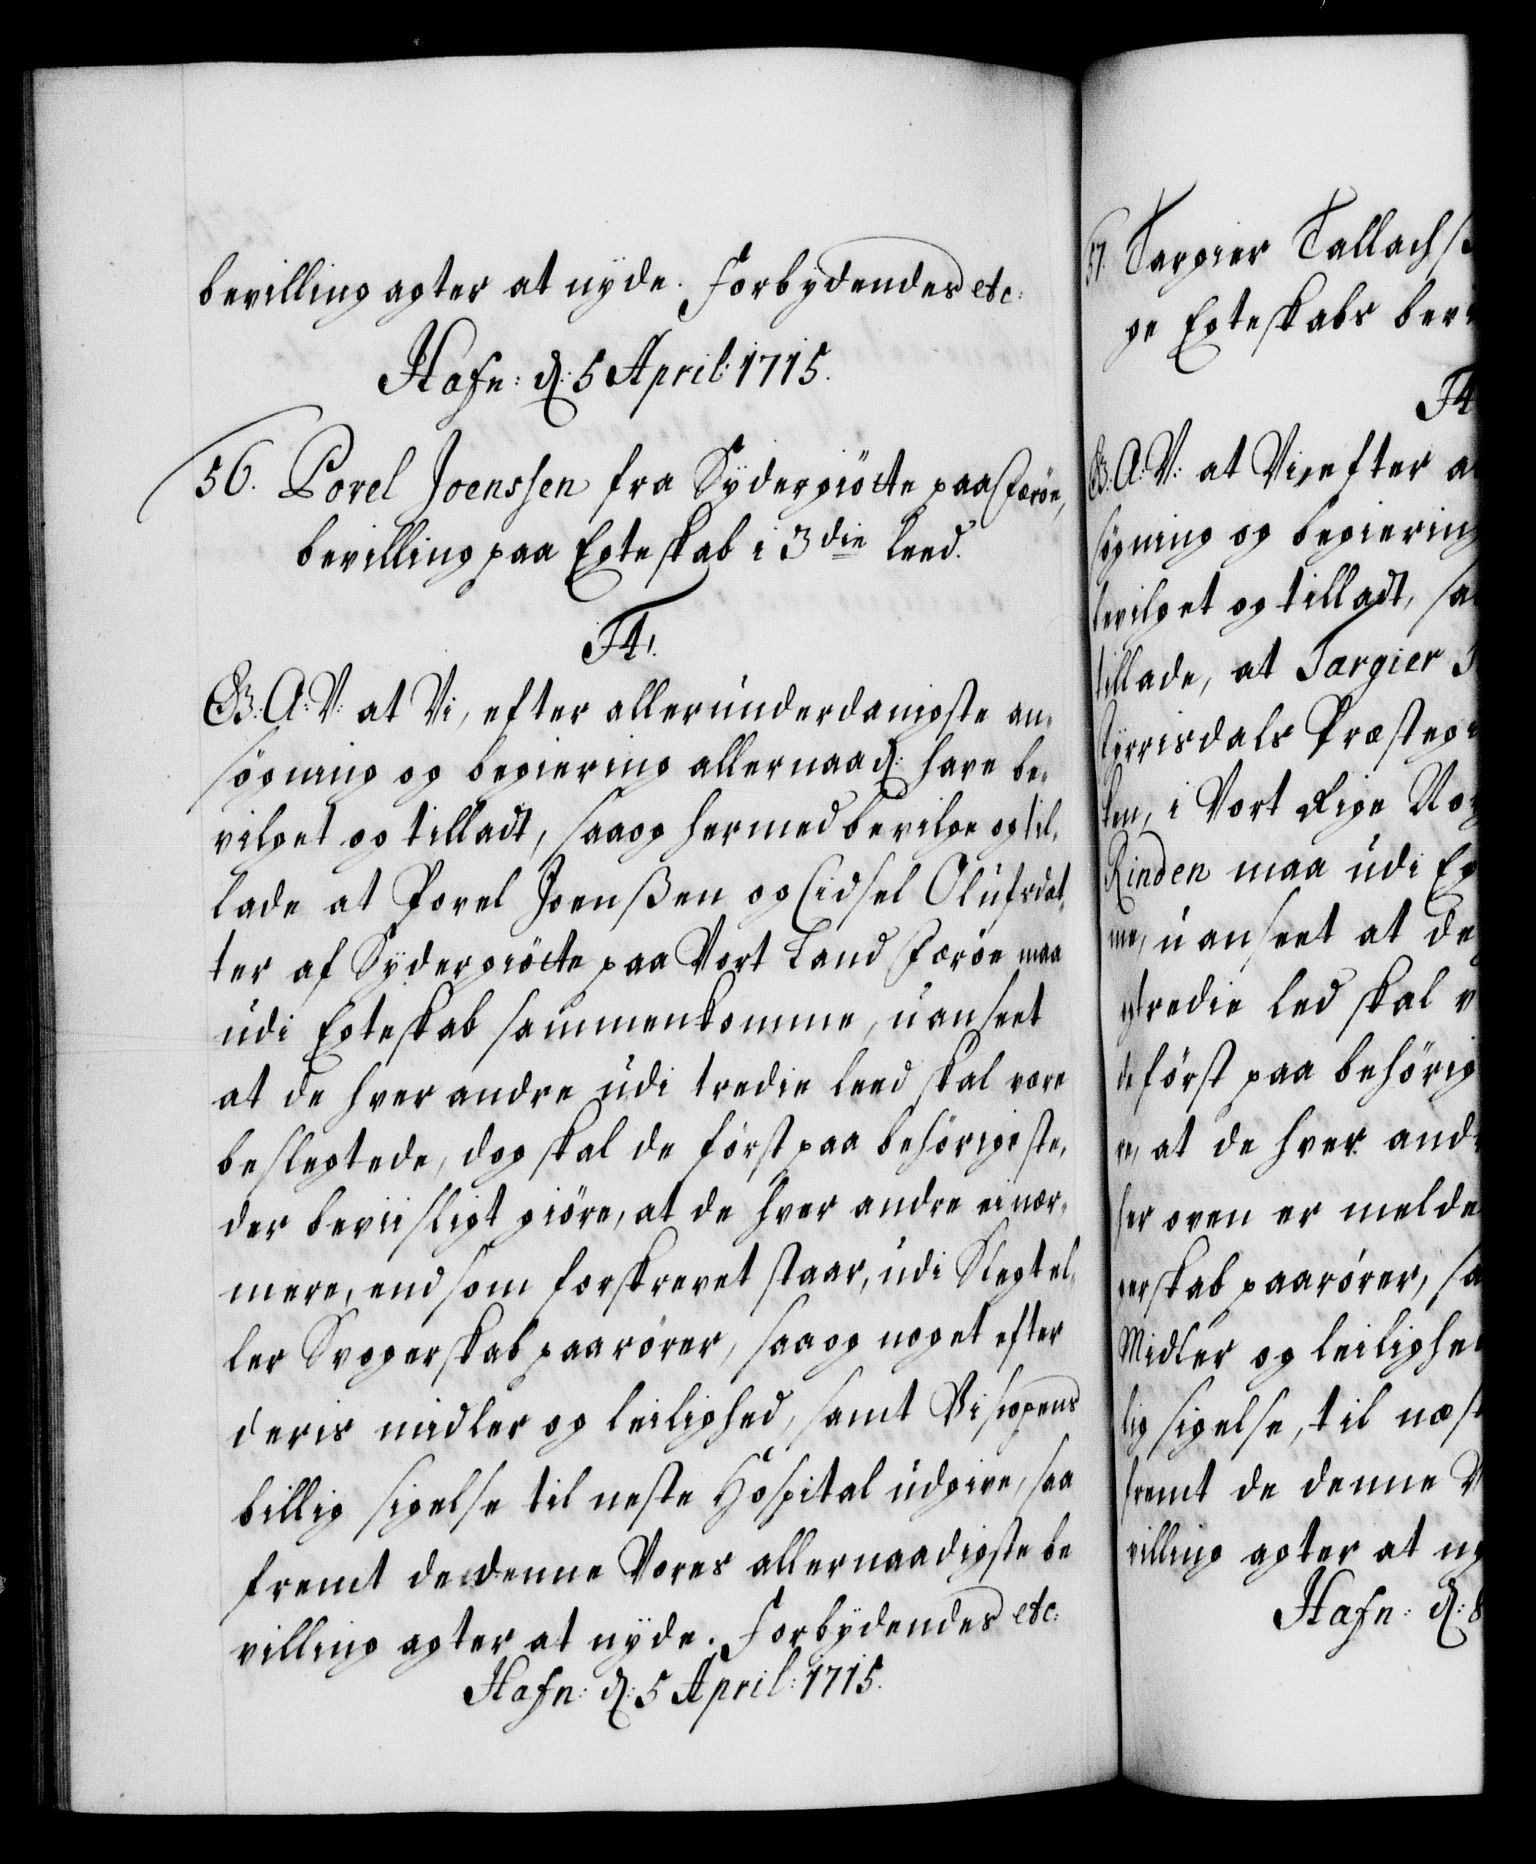 bevilling agter at nyde. Forbydendes etc:
Hafn: d: 5 April: 1715.
56. Povel Joenssen fra Sydergiøtte paa Færöe,
bevilling paa Egteskab i 3die leed.
F4.
G. A: V: at Vi, efter allerunderdanigste an-
søgning og begiering allernaad: have be-
vilget og tilladt, saa og hermed bevilge og til-
lade at Povel Joenßen og Cidsel Olufsdat-
ter af Sydergiøtte paa Vort Land Færöe maa
udi Egteskab sammenkomme, uanseet
at de hver andre udi tredie leed skal være
beslegtede, dog skal de först paa behörige ste-
der beviisligt giöre, at de hver andre ei nær-
mere, end som forskrevet staar, udi Slegt el-
ler Svogerskab paarörer, saa og noget efter
deris midler og leilighed, samt Biscopens
billig sigelse til neste Hospital udgive, saa
fremt de denne Vores allernaadigste be
villing agter at nyde. Forbydendes etc:
Hafn: d: 5 April: 1715.
57. Targier Tallachs
ge Egteskabs bev
F4
G. A: V: at Vi, efter a
søgning og begiering
bevilget og tilladt, sa
tillade, at Targier
Præstegi
ten, i Vort Rige No
Rinden maa udi Eg
me, uanseet at de
tredie led skal v
de först paa behörig
re, at de hver and
her oven er melde
gerskab paarörer, sa
Midler og leilighe
lig sigelse, til næst
fremt de denne V
villing agter at ny
Hafn: d: 8